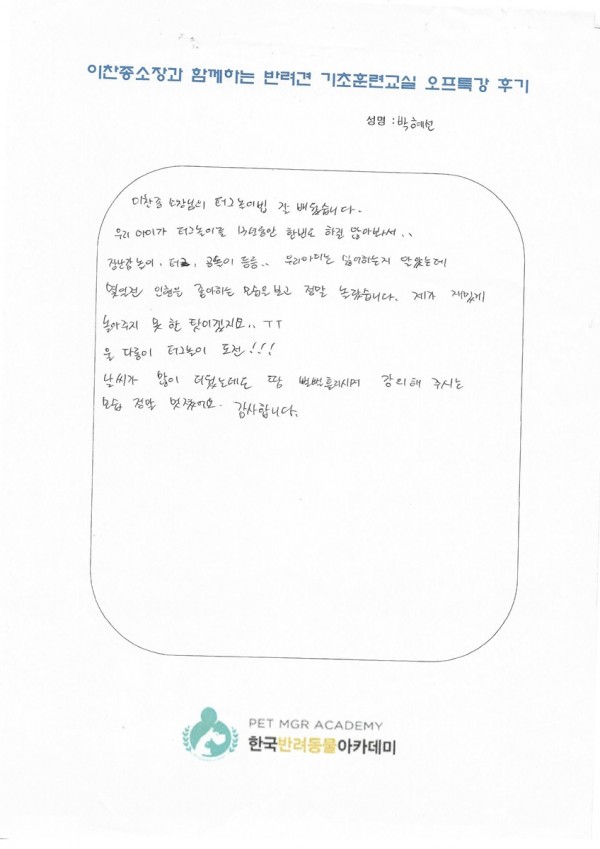 이찬종소장과 함께하는 반려견 기초훈련교실 오프특강 후기
성명 : 박혜선
이찬종 소장님의 터그놀이법 잘 배웠습니다.
우리 아이가 터그놀이를 13년동안 한번도 하질 않아봐서..
장난감놀이, 터그, 공놀이 등등.. 우리아이는 싫어하는지 알았는데
몇일전 인형을 좋아하는 모습을 보고 정말 놀랐습니다. 제가 재밌게
놀아주지 못 한 탓이겠지요.. ㅜㅜ
울 다롱이 터그놀이 도전!!!
날씨가 많이 더웠는데도 땀 뻘뻘흘리시며 강의해 주시는
모습 정말 멋졌어요. 감사합니다.
PET MGR ACADEMY
한국반려동물아카데미